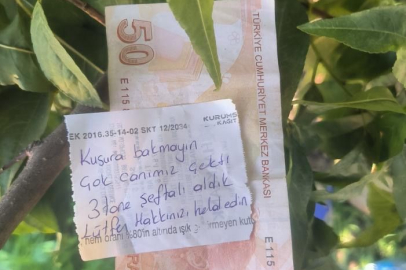 50
E 115
TÜRKİYE CUMHURİYET MERKEZ BANKASI
EK 2016.35-14-02 SKT 12/20
KURUMS
KAĞIT
Kusura bakmayın
Çok canımız çekti
3 tane şeftali aldık
Lütfen Hakkınızı helal edin
nem oranı %80'in altında ışık
rmeyen kut
E 115